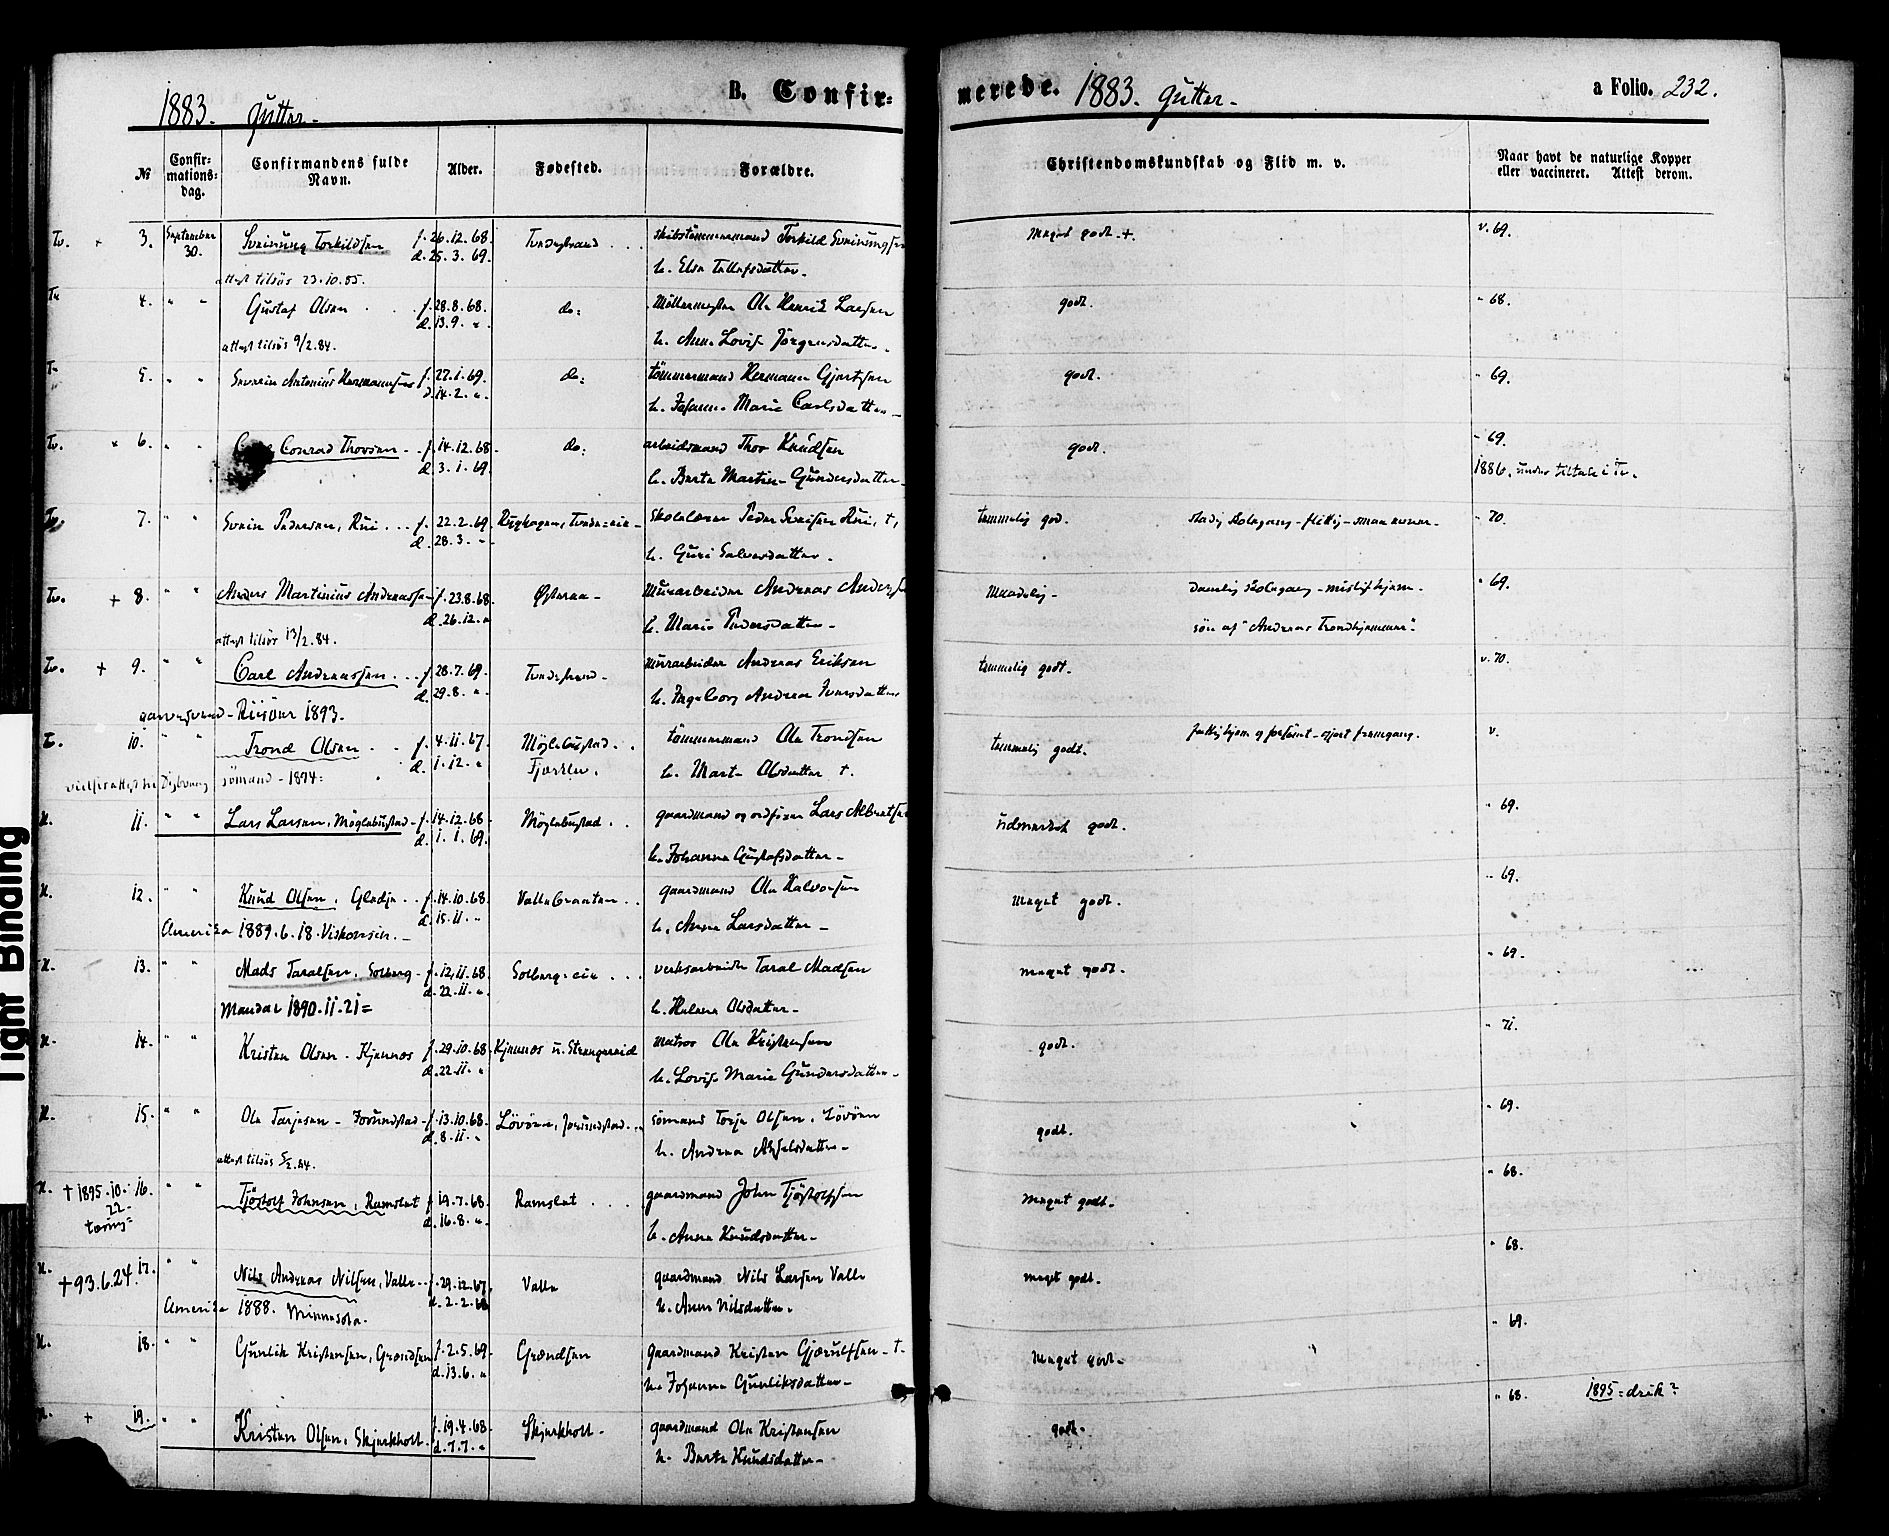 1883. Gutter.
B. Confirmerede. 1883. Gutter.
a Folio. 232.
№ Confirmations-dag. Confirmandens fulde Navn. Alder. Fødested. Forældre. Christendomskundskab og Flid m. v. Naar havt de naturlige Kopper eller vaccineret. Attest derom.
Tv. + 3. September 30. Sveinung Torkildsen f. 26.12.68. d. 25.3.69. Tvedestrand skibstömmermand Torkild Sveinungsen Meget godt + v. 69.
attest tilsös 23.10.85. h. Else Tellefsdatter
Tv 4. " " Gustaf Olsen f. 28.8.68. d. 13.9. " do: Möllermester Ole Henrik Larsen godt. " 68.
attest tilsös 9/2.84. h. Anne Lovise Jörgensdatter.
Tv 5. " " Severin Antonius Hermannsen f. 27.1.69. d. 14.2. " do: tömmermand Hermann Gjertsen godt. " 69.
h. Johanne Marie Carlsdatter
Tv. × 6. " " Conrad Thorsen f. 14.12.68. d. 3.1.69. do: arbeidsmand Thor Knudsen godt. " 69.
h. Berte Martine Gundersdatter 1886. under tiltale i Tv.
Tv 7. " " Svein Pedersen, Rui f. 22.2.69 d. 28.3. " skolelærer Peder Sveinsen Rui, †, temmelig god. stadig skolegang - flittig - " 70.
h. Guri Salvesdatter
Tv. + 8. " " Anders Martinius Andreassen f. 23.8.68. d. 26.12. " Østeraa Murarbeider Andreas Anders Maadelig daarlig skolegang - " 69.
attest tilsös 13/2.84. h. Marie Pedersdatter sön af "Andreas Trondhjemmer".
Tv. + 9. " " Carl Andreassen f. 28.7.69. d. 29.8. " Tvedestrand Murarbeider Andreas Eriksen temmelig godt. v. 70.
Risöer 1893. h. Ingeborg Andrea Iversdatter
10. " " Trond Olsen f. 4.11.67. d. 1.12. " Möglebustad Fjærkleiv. tömmermand Ole Trondsen temmelig godt. fattig hjem og forsömt - gjort fremgang. v.
Dybvaag sömand - 1894: h. Marte Olsdatter †.
H. 11. " " Lars Larsen, Möglebustad f. 14.12.68 d. 1.1.69. Möglebustad gaardmand og ordförer Lars Albretsen udmerket godt. " 69.
h. Johanna Gustafsdatter
H. 12. " " Knud Olsen, Gledje f. 14.10.68. d. 15.11. " Vallebraaten gaardmand Ole Halvorsen Meget godt. " 69.
Amerika 1889.6.18. Viskonsin. h. Anne Larsdatter
H. 13. " " Mads Taralsen, Solberg f. 12.11.68. d. 22.11. " Solberg-eie verksarbeider Taral Madsen meget godt. " 69.
Mandal 1890.11.21= h. Helene Olsdatter
H. 14. " " Kristen Olsen - Kjennes f. 29.10.68. d. 22.11. " Kjennes u. Strengereid matros Ole Kristensen godt. " 71.
h. Lovise Marie Gundersdatter
H. 15. " " Ole Tarjesen - Jorundstad f. 13.10.68. d. 8.11. " Lövöen, Jorundstad sömand Torje Olsen, Lövöen godt. " 69.
attest tilsös 5/2.84. h. Andrea Akselsdatter
H. † 1895.10.22. tæring= 16. " " Tjöstolf Johnsen, Ramslet f. 19.7.68. d. 16.8. " Ramslet gaardmand John Tjöstolfsen Meget godt. " 68.
h. Anne Knudsdatter
H. † 93.6.24. 17. " " Nils Andreas Nilsen, Valle f. 29.12.67. d. 2.2.68 Valle gaardmand Nils Larsen Valle meget godt. " 68.
Amerika 1888. Minnesota. h. Anne Nilsdatter.
H. 18. " " Gunlik Kristensen, Grændsen f. 2.5.69. d. 13.6. " Grændsen gaardmand Kristen Gjerulfsen - † Meget godt " 69.
h. Johanne Gunliksdatter
H. + 19. " " Kristen Olsen, Skjerkholt f. 19.4.68 d. 7.7. " Skjerkholt gaardmand Ole Kristensen godt. " 68. 1895 = druk?
h. Berte Knudsdatter
Tight Binding